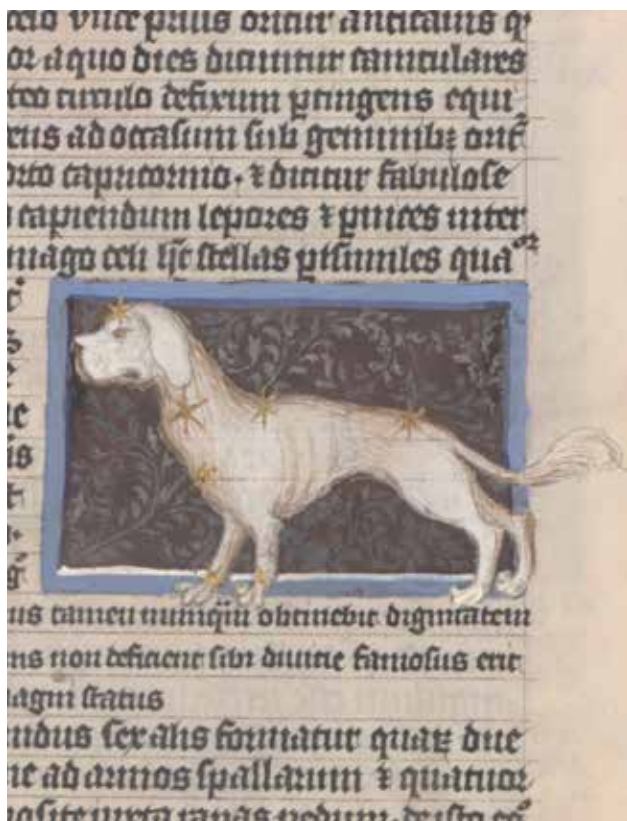 prius oritur anticanis q
or a quo dies dicuntur caniculares
teo circulo defixum ptingens equi
eus ad occasum sub geminibz orit
orto capricorno. ⁊ dicitur fabulose
capiendum lepores ⁊ pnices inter
imago celi hȝ stellas ptsumiles qua
us tamen nunqm obtinebit dignitatem
ns non deficient sibi diuitie famosus erit
agni status
ndus sex alis formatur quaꝝ due
ne ad armos spallarum ⁊ quatuor
posite iuxta pedum. de isto